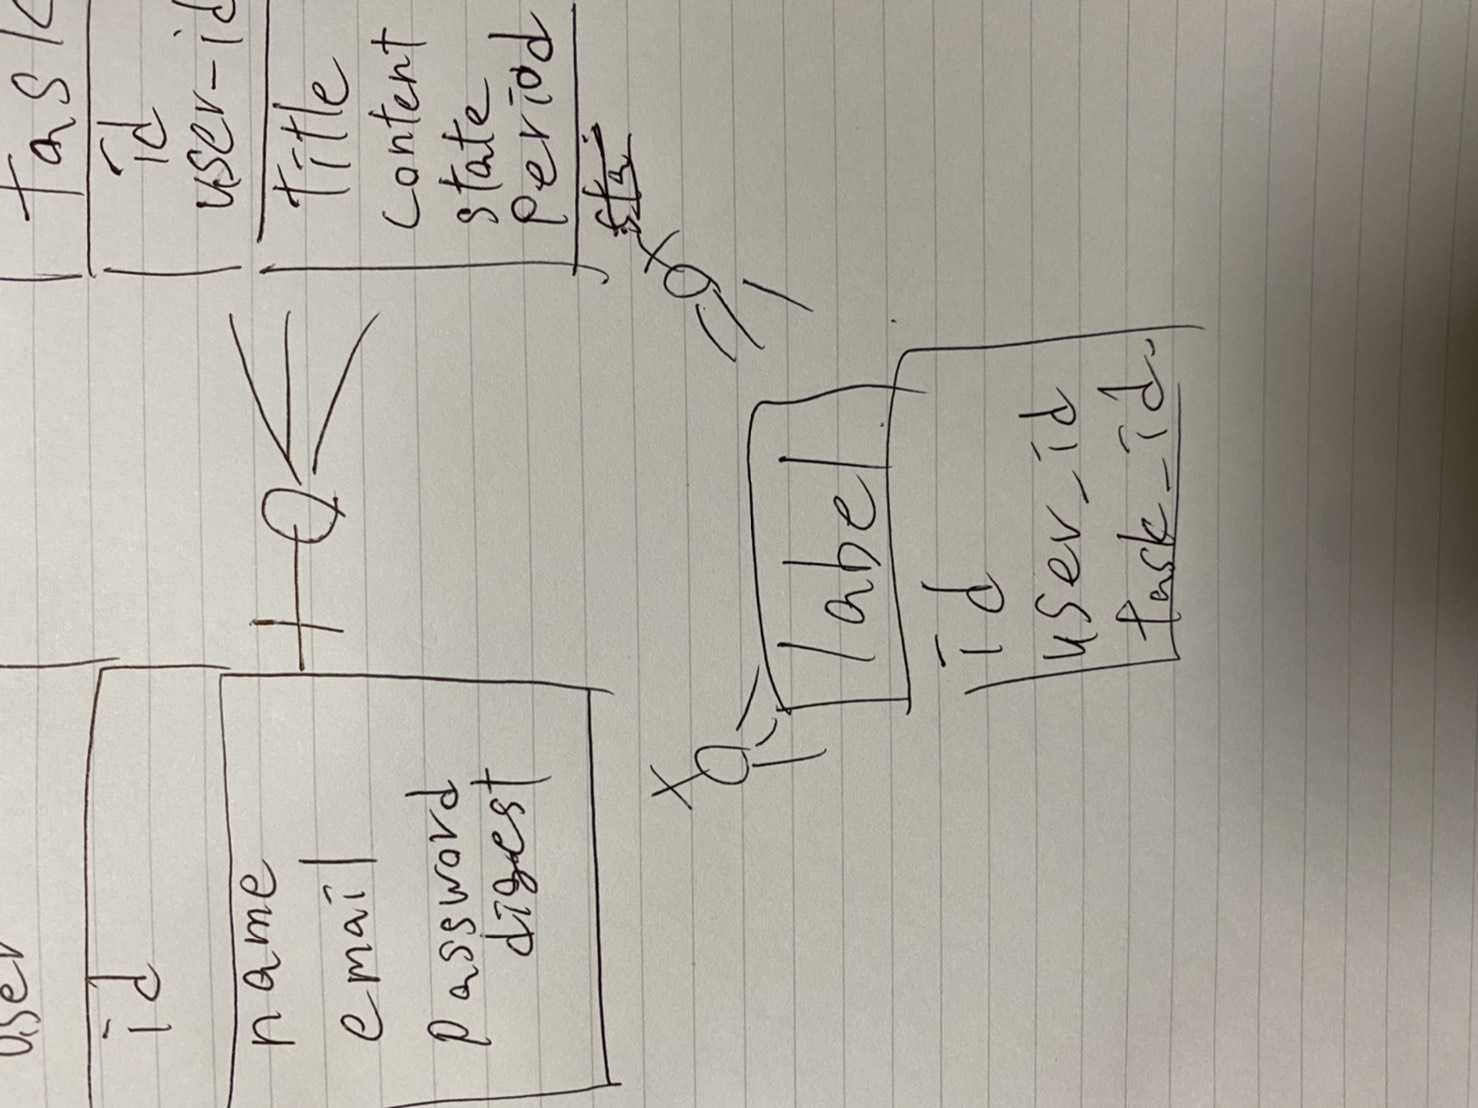 user
id
name
email
password
digest
task
id
user-id
title
content
state
period
sta
label
id
user_id
task_id